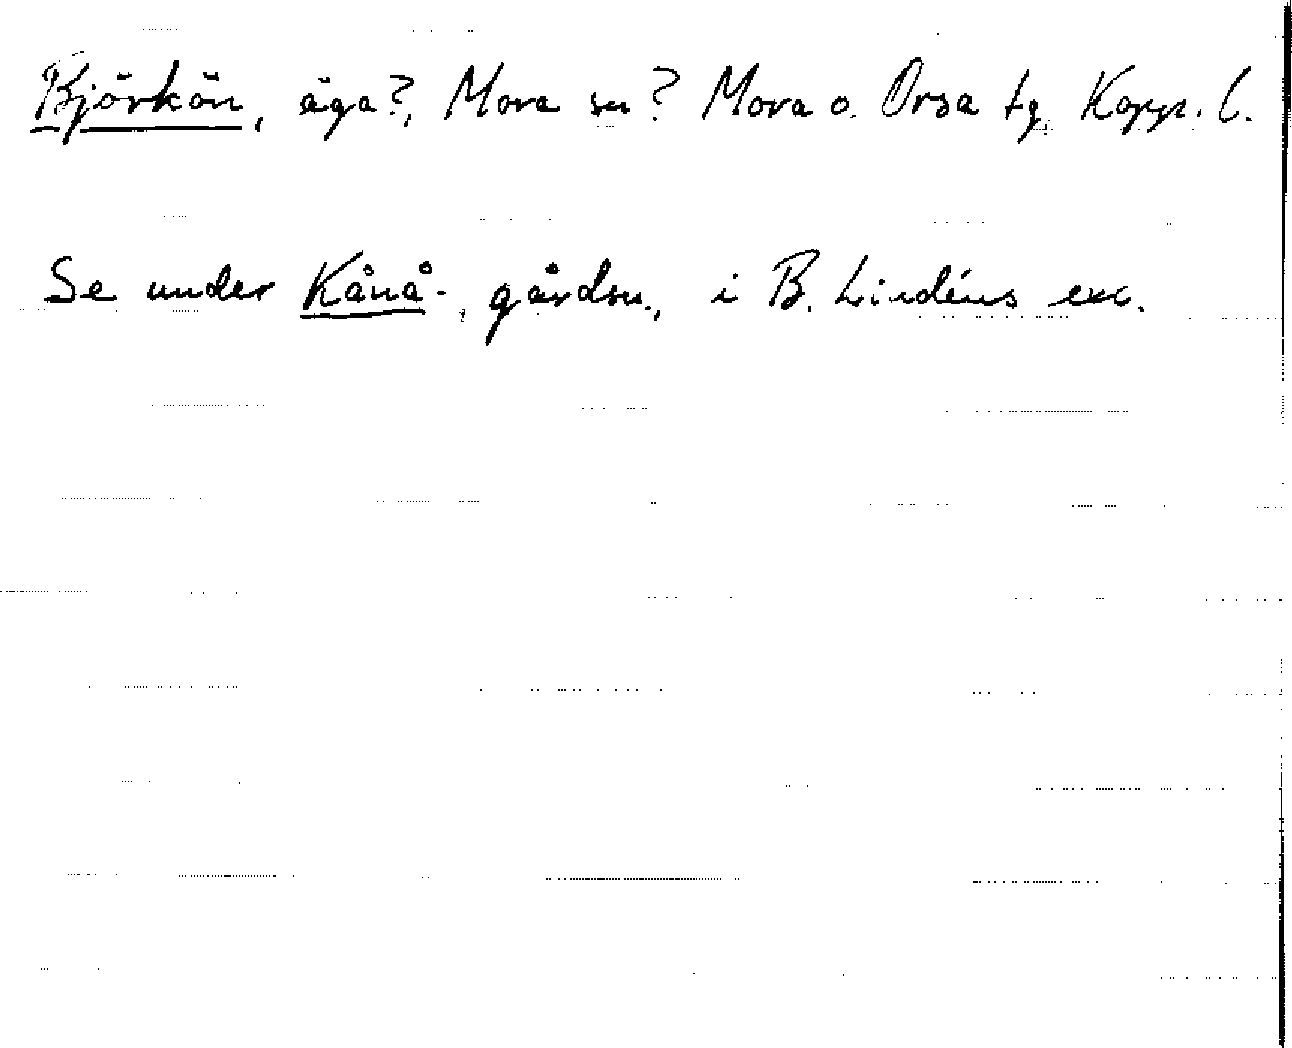 Björkön, äga?, Mora sn? Mora o. Orsa tg Kopp. l.
Se under Kånå-, gårdsn., i B. Lindéns exc.